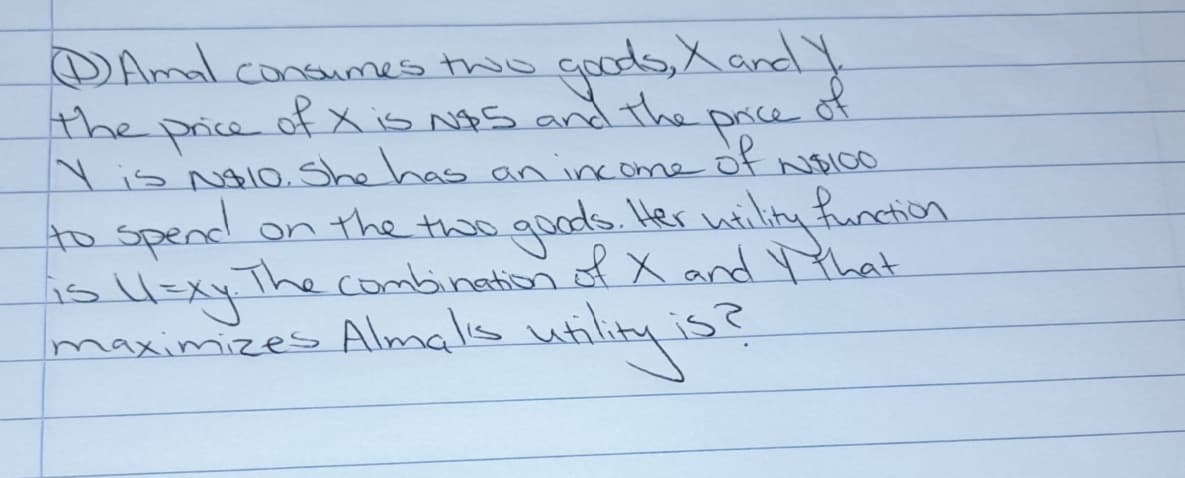 ① Amal consumes two goods, X and Y.
the price of X is N$5 and the price of
Y is N$10. She has an income of N$100
to spend on the two goods. Her utility function
is U=xy. The combination of X and Y that
maximizes Almal's utility is?